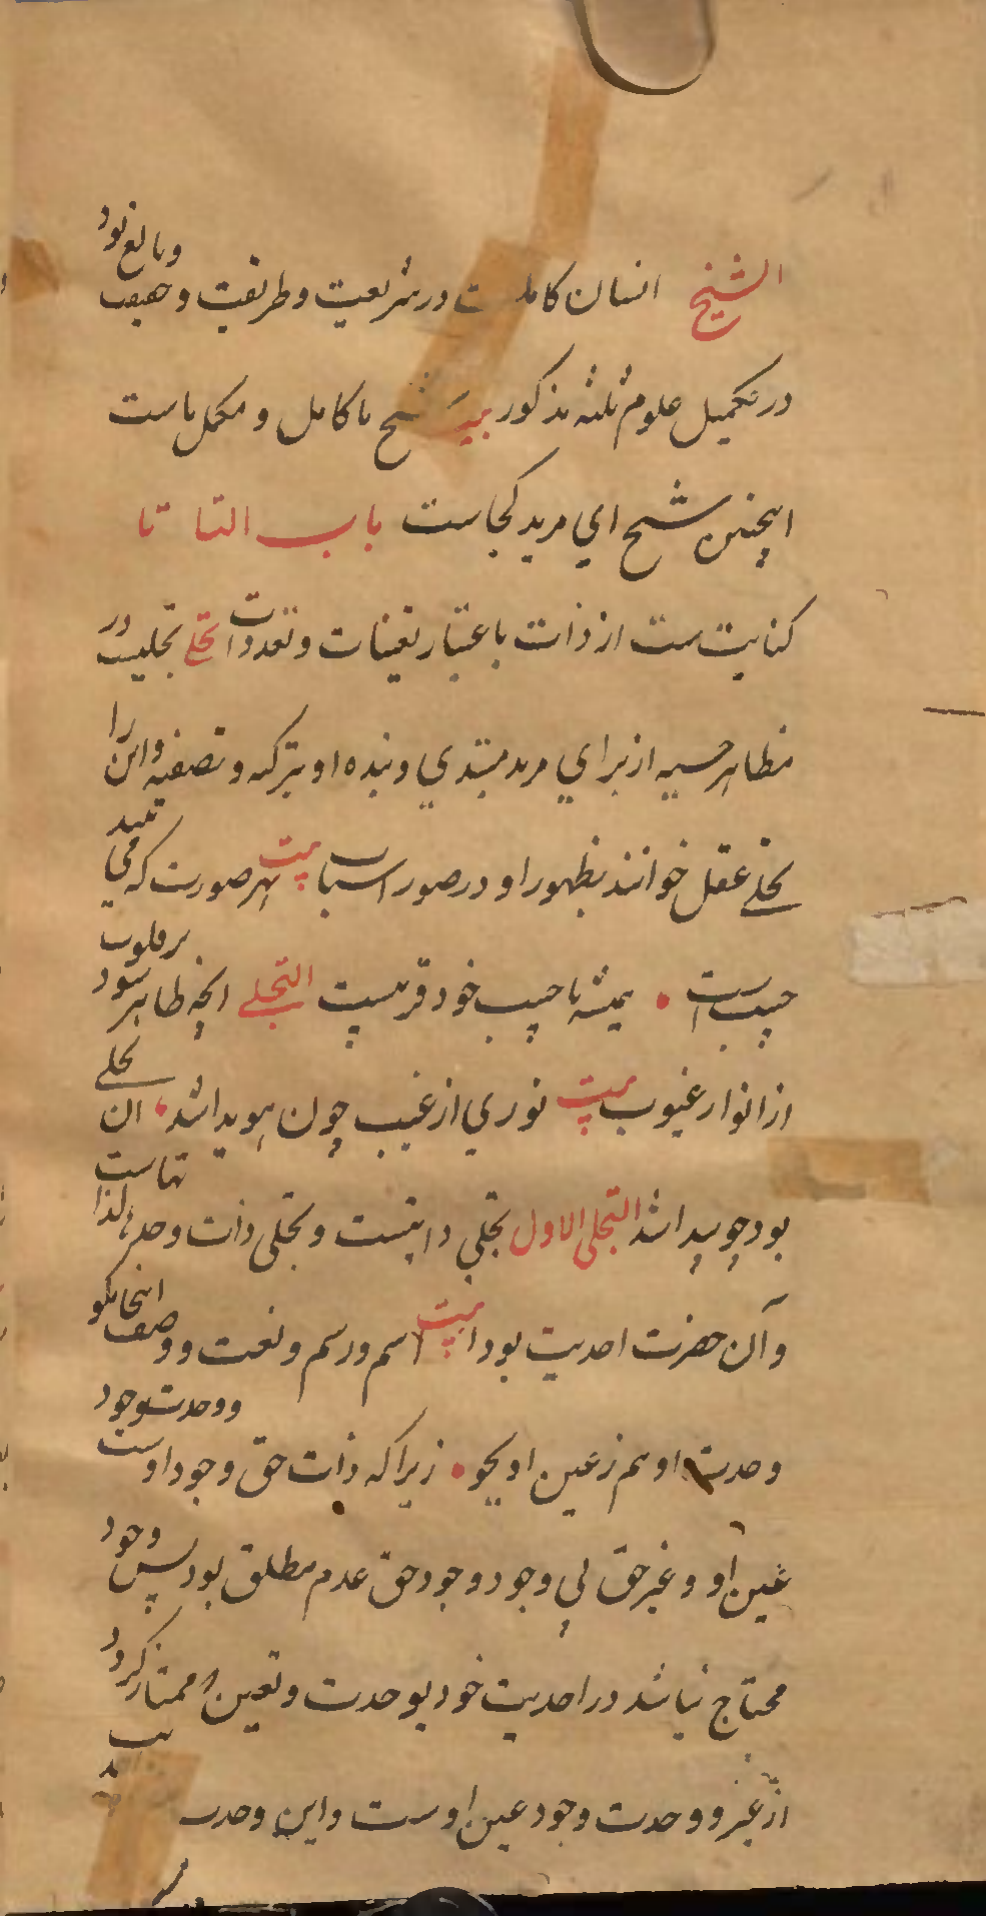 الشيخ انسان کامل ست در شریعت و طریقت و حقیقت و بالغ بود
در تکمیل علوم ثلثه مذکور بیت شیخ ما کامل و مکمل ماست
اینچنین شیخ ای مرید کجاست باب التا تا
کنایت ست از ذات باعتبار تعینات و تعددات تجلی تجلیست در
مظاهر حسیه از برای مرید مبتدی و بنده او بتزکیه و تصفیه و این را
تجلی عقل خوانند بظهور او در صور اسباب بیت بهر صورت که می
حبیب است • همیشه با حبیب خود قریبست التجلی انچه ظاهر شود بر قلوب
از انوار غیوب بیت نوری از غیب چون هویدا شد • ان تجلی
بود چو پیدا شد التجلی الاول تجلی ذاتیست و تجلی ذات وحدها لذاتهاست
و آن حضرت احدیت بود بیت اسم و رسم و نعت و وصف اینجا مگو
وحدت او هم ز عین او بجو • زیرا که ذات حق وجود اوست و وحدت وجود
عین او و غیر حق بی وجود وجود حق عدم مطلق بود پس وجود
محتاج نباشد در احدیت خود بوحدت و تعین ممتاز کردد
از غیر و وحدت وجود عین اوست و این وحدت